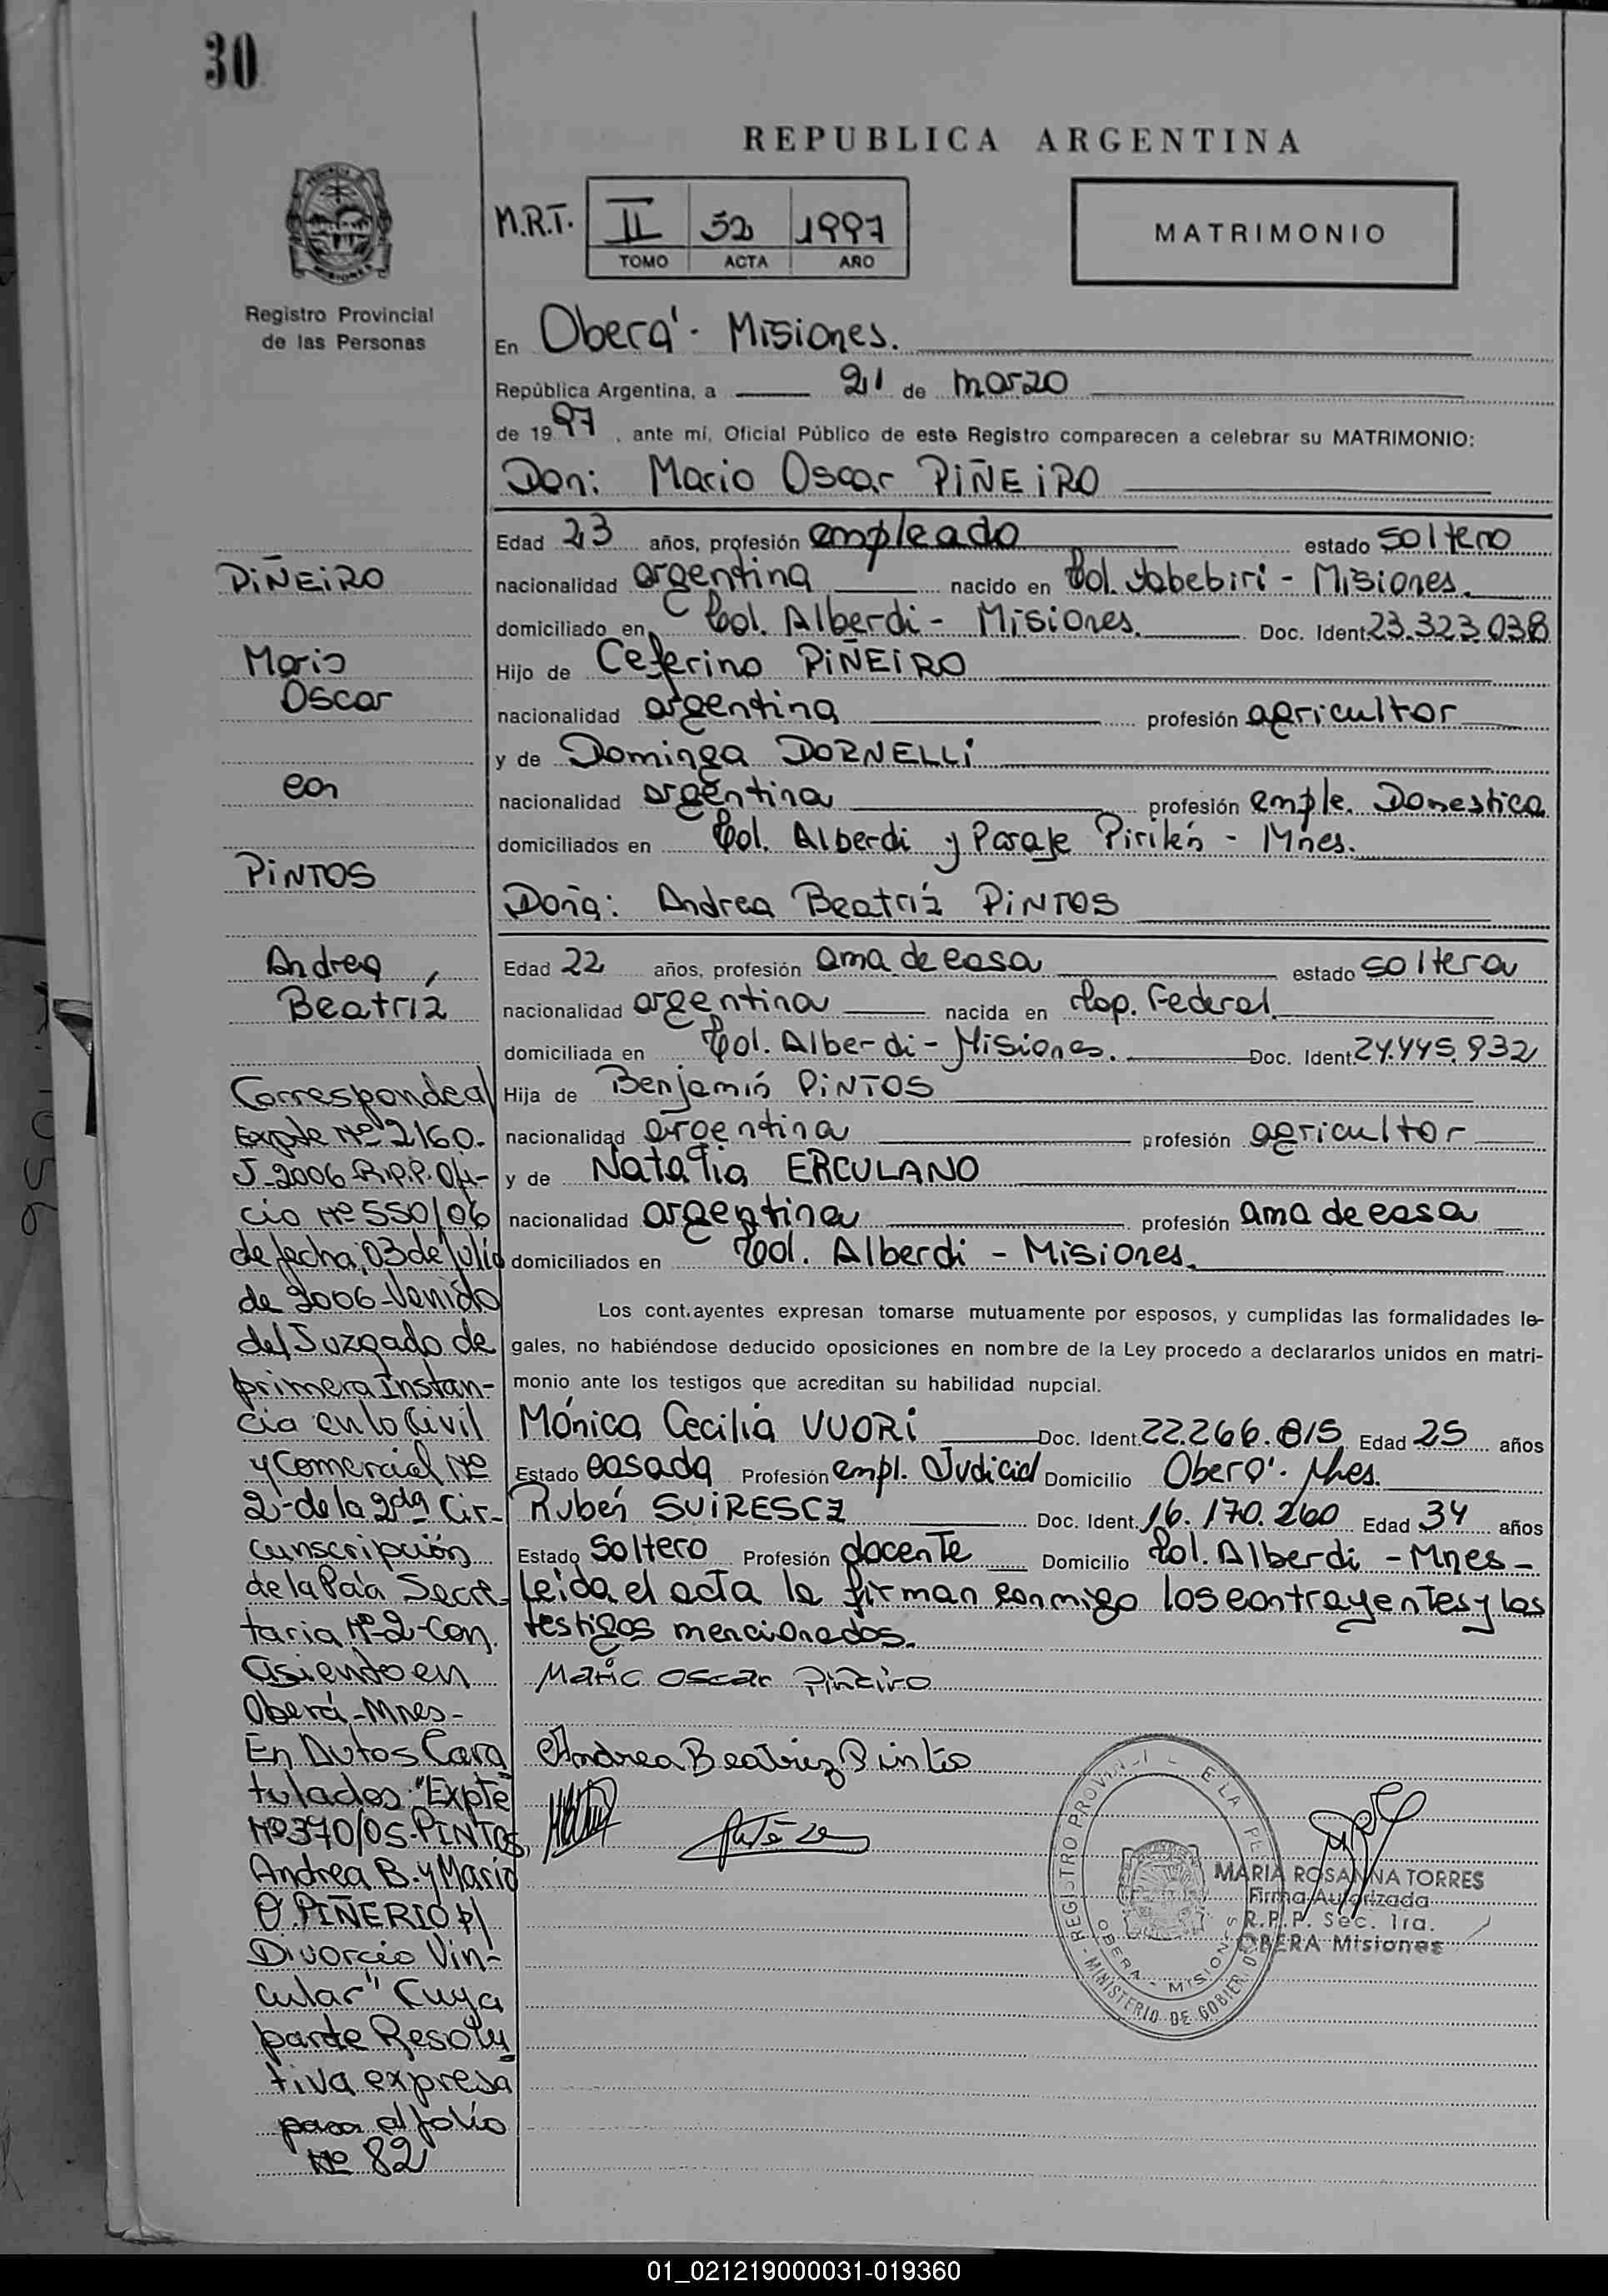 30
REPUBLICA ARGENTINA
M.R.T. II 52 1997
TOMO ACTA AÑO
MATRIMONIO
Registro Provincial
de las Personas
En Oberá - Misiones.
República Argentina, a 21 de marzo
de 1997, ante mí, Oficial Público de este Registro comparecen a celebrar su MATRIMONIO:
Don: Mario Oscar PIÑEIRO
Edad 23 años, profesión empleado estado soltero
nacionalidad argentina nacido en Col. Yabebiri - Misiones.
domiciliado en Col. Alberdi - Misiones. Doc. Ident. 23.323.038
Hijo de Ceferino PIÑEIRO
nacionalidad argentina profesión agricultor
y de Dominga DORNELLI
nacionalidad argentina profesión emple. Domestica
domiciliados en Col. Alberdi y Paraje Pirikén - Mnes.
Doña: Andrea Beatríz PINTOS
Edad 22 años, profesión ama de casa estado soltera
nacionalidad argentina nacida en Cap. Federal.
domiciliada en Col. Alberdi - Misiones. Doc. Ident. 24.445.932
Hija de Benjamín PINTOS
nacionalidad argentina profesión agricultor
y de Natalia ERCULANO
nacionalidad argentina profesión ama de casa
domiciliados en Col. Alberdi - Misiones.
Los cont.ayentes expresan tomarse mutuamente por esposos, y cumplidas las formalidades le-
gales, no habiéndose deducido oposiciones en nombre de la Ley procedo a declararlos unidos en matri-
monio ante los testigos que acreditan su habilidad nupcial.
Mónica Cecilia VUORI Doc. Ident. 22.266.815 Edad 25 años
Estado casada Profesión empl. Judicial Domicilio Oberá - Mnes.
Rubén SUIRESCZ Doc. Ident. 16.170.260 Edad 34 años
Estado soltero Profesión docente Domicilio Col. Alberdi - Mnes -
Leída el acta la firman conmigo los contrayentes y los
testigos mencionados.
Mario Oscar Piñeiro
Andrea Beatriz Pintos
PIÑEIRO
Mario
Oscar
con
PINTOS
Andrea,
Beatríz
Corresponde al
Expte Nº 2160.
J-2006-R.P.P. Ofi-
cio Nº 550/06
de fecha, 03 de Julio
de 2006-Venido
del Juzgado de
primera Instan-
cia en lo Civil
y Comercial Nº
2-de la 2da Cir-
cunscripción
de la Pcia Secre-
taria Nº 2-Con.
asiento en
Oberá-Mnes-
En Autos Cara
tulados "Expte
Nº 370/05-PINTOS,
Andrea B. y Mario
O PIÑERIO p/
Divorcio Vin-
cular" Cuya
parte Resolu
tiva expresa
pasa al folio
Nº 82
MARIA ROSANNA TORRES
Firma Autorizada
R.P.P. Sec. 1ra.
OBERA Misiones
OBERA - MISIONES
MINISTERIO DE GOBIERNO
01_021219000031-019360